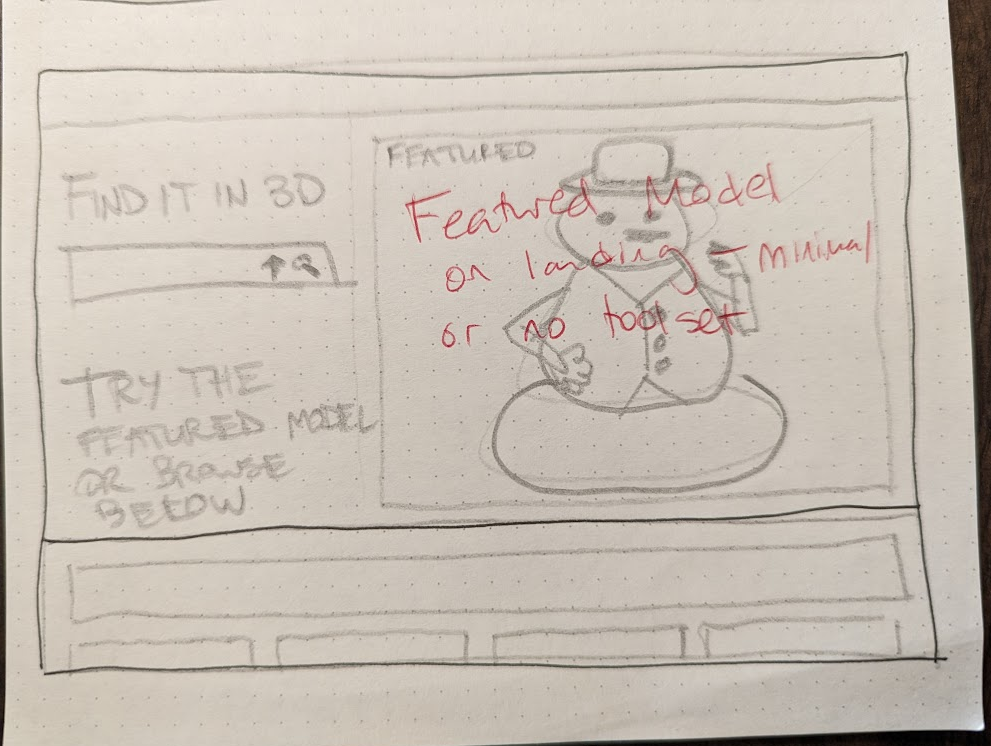 FIND IT IN 3D
TRY THE
FEATURED MODEL
OR BROWSE
BELOW
FEATURED
Featured Model
on landing - minimal
or no toolset